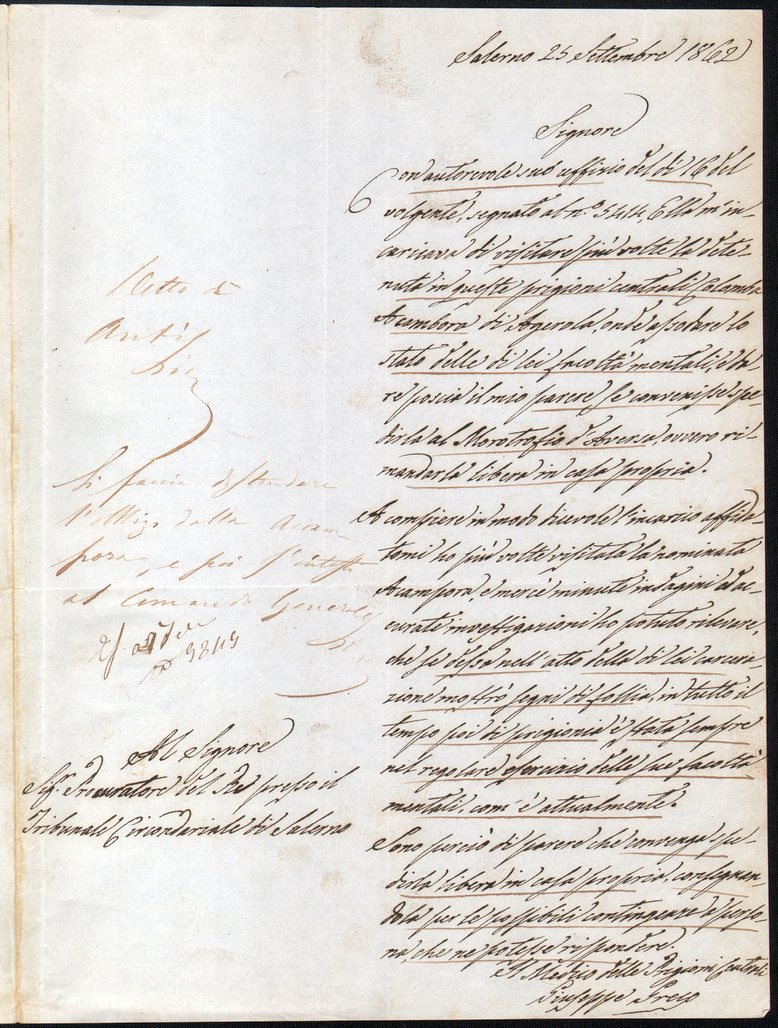 Salerno 25 Settembre 1862
Signore
Con autorevole suo uffizio del dì 16 del
volgente, segnato al n.º 5414, Ella m'in-
caricava di visitare più volte la dete-
nuta in queste prigioni centrali Colomba
Acambora di Agerola, onde assodare lo
stato delle di lei facoltà mentali, e da-
re poscia il mio parere se convenisse spe-
dirla al Morotrofio d'Aversa, ovvero ri-
mandarla libera in casa propria.
A compiere in modo dicevole l'incarico affida-
tomi ho più volte visitata la nominata
Acampora, e mercè minute indagini ed ac-
curate investigazioni ho potuto rilevare,
che se dessa nell'atto della di lei carcera-
zione mostrò segni di follia, in tutto il
tempo poi di prigionia è stata sempre
nel regolare esercizio delle sue facoltà
mentali, com'è attualmente.
Sono perciò di parere che convenga spe-
dirla libera in casa propria, consegnan-
dola per le possibili contingenze a perso-
na, che ne potesse rispondere.
Il Medico delle Prigioni Centrali
Giuseppe Greco
Atti
Si faccia distendere
l'obbligo dalla Acam-
pora, e poi
al Comando Generale
Al Signore
Sig. Procuratore del Re presso il
Tribunale Circondariale di Salerno